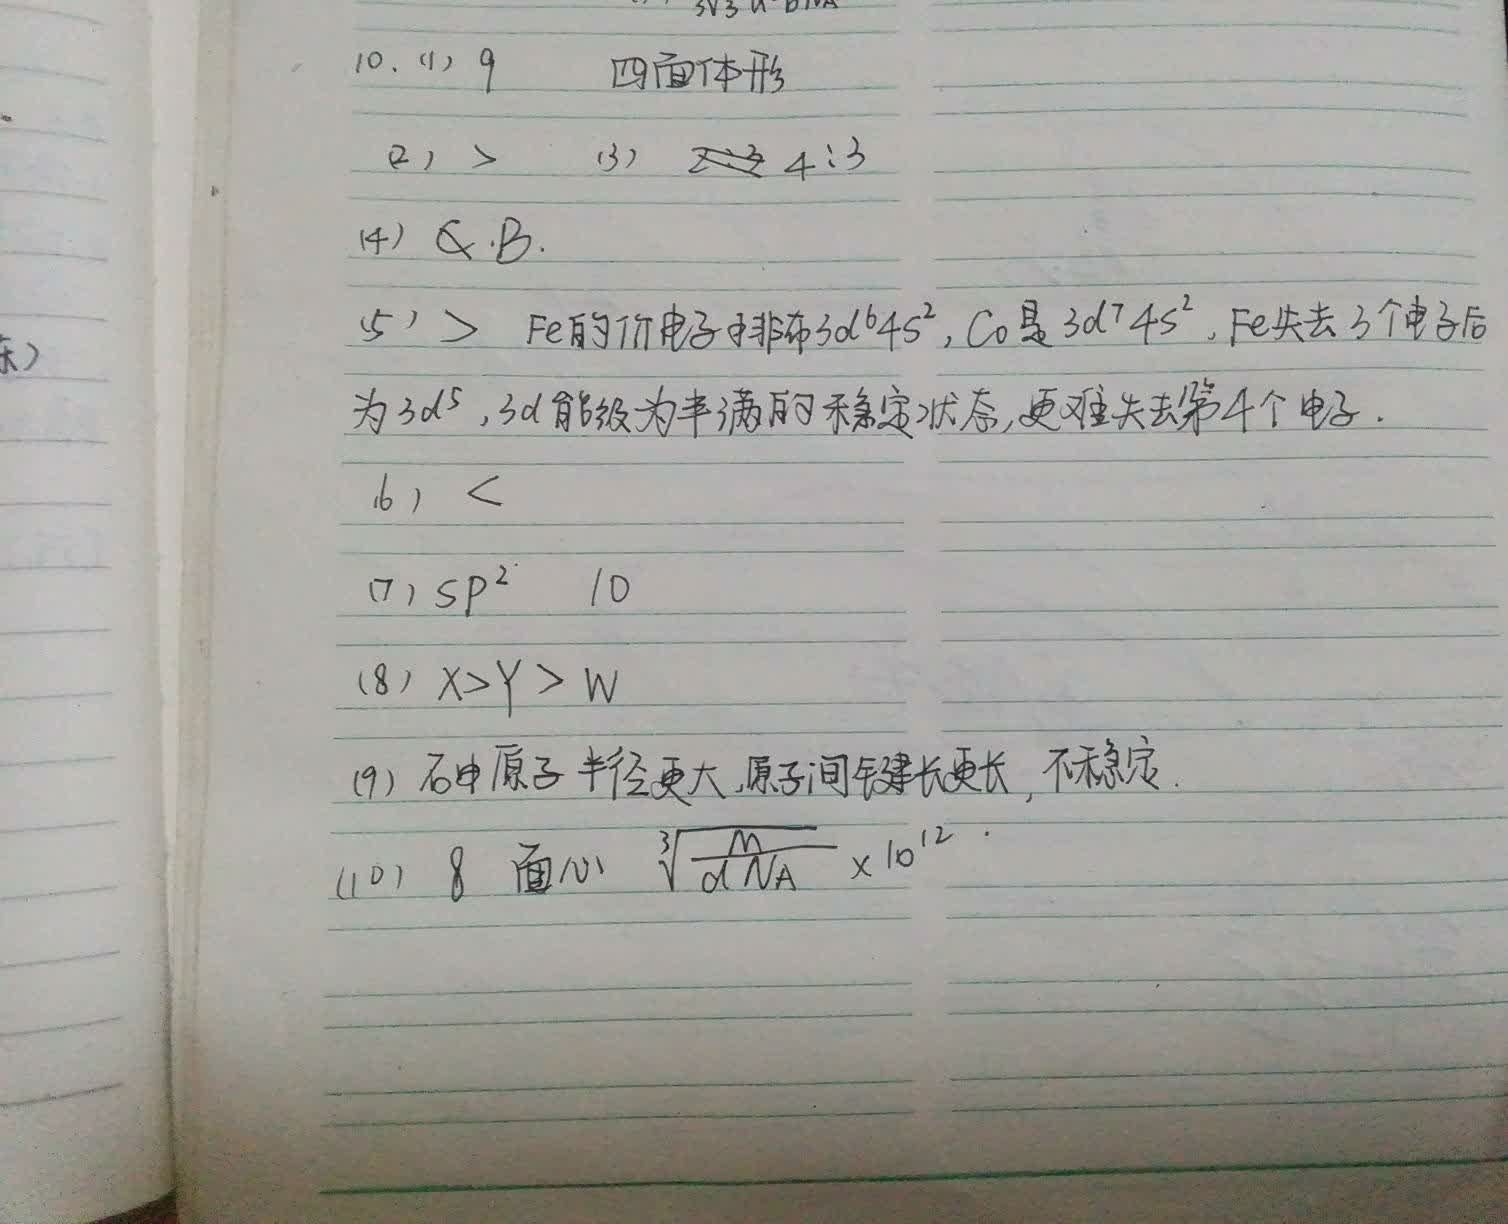 3√3 a²bNA
10. (1) 9 四面体形
(2) > (3) 4:3
(4) B.
(5) > Fe的价电子排布3d⁶4s², Co是3d⁷4s², Fe失去3个电子后
为3d⁵, 3d能级为半满的稳定状态, 更难失去第4个电子.
(6) <
(7) SP² 10
(8) X>Y>W
(9) 石申原子半径更大,原子间键长更长, 不稳定.
(10) 8 面心 ³√(M/dNA) ×10¹²
东)